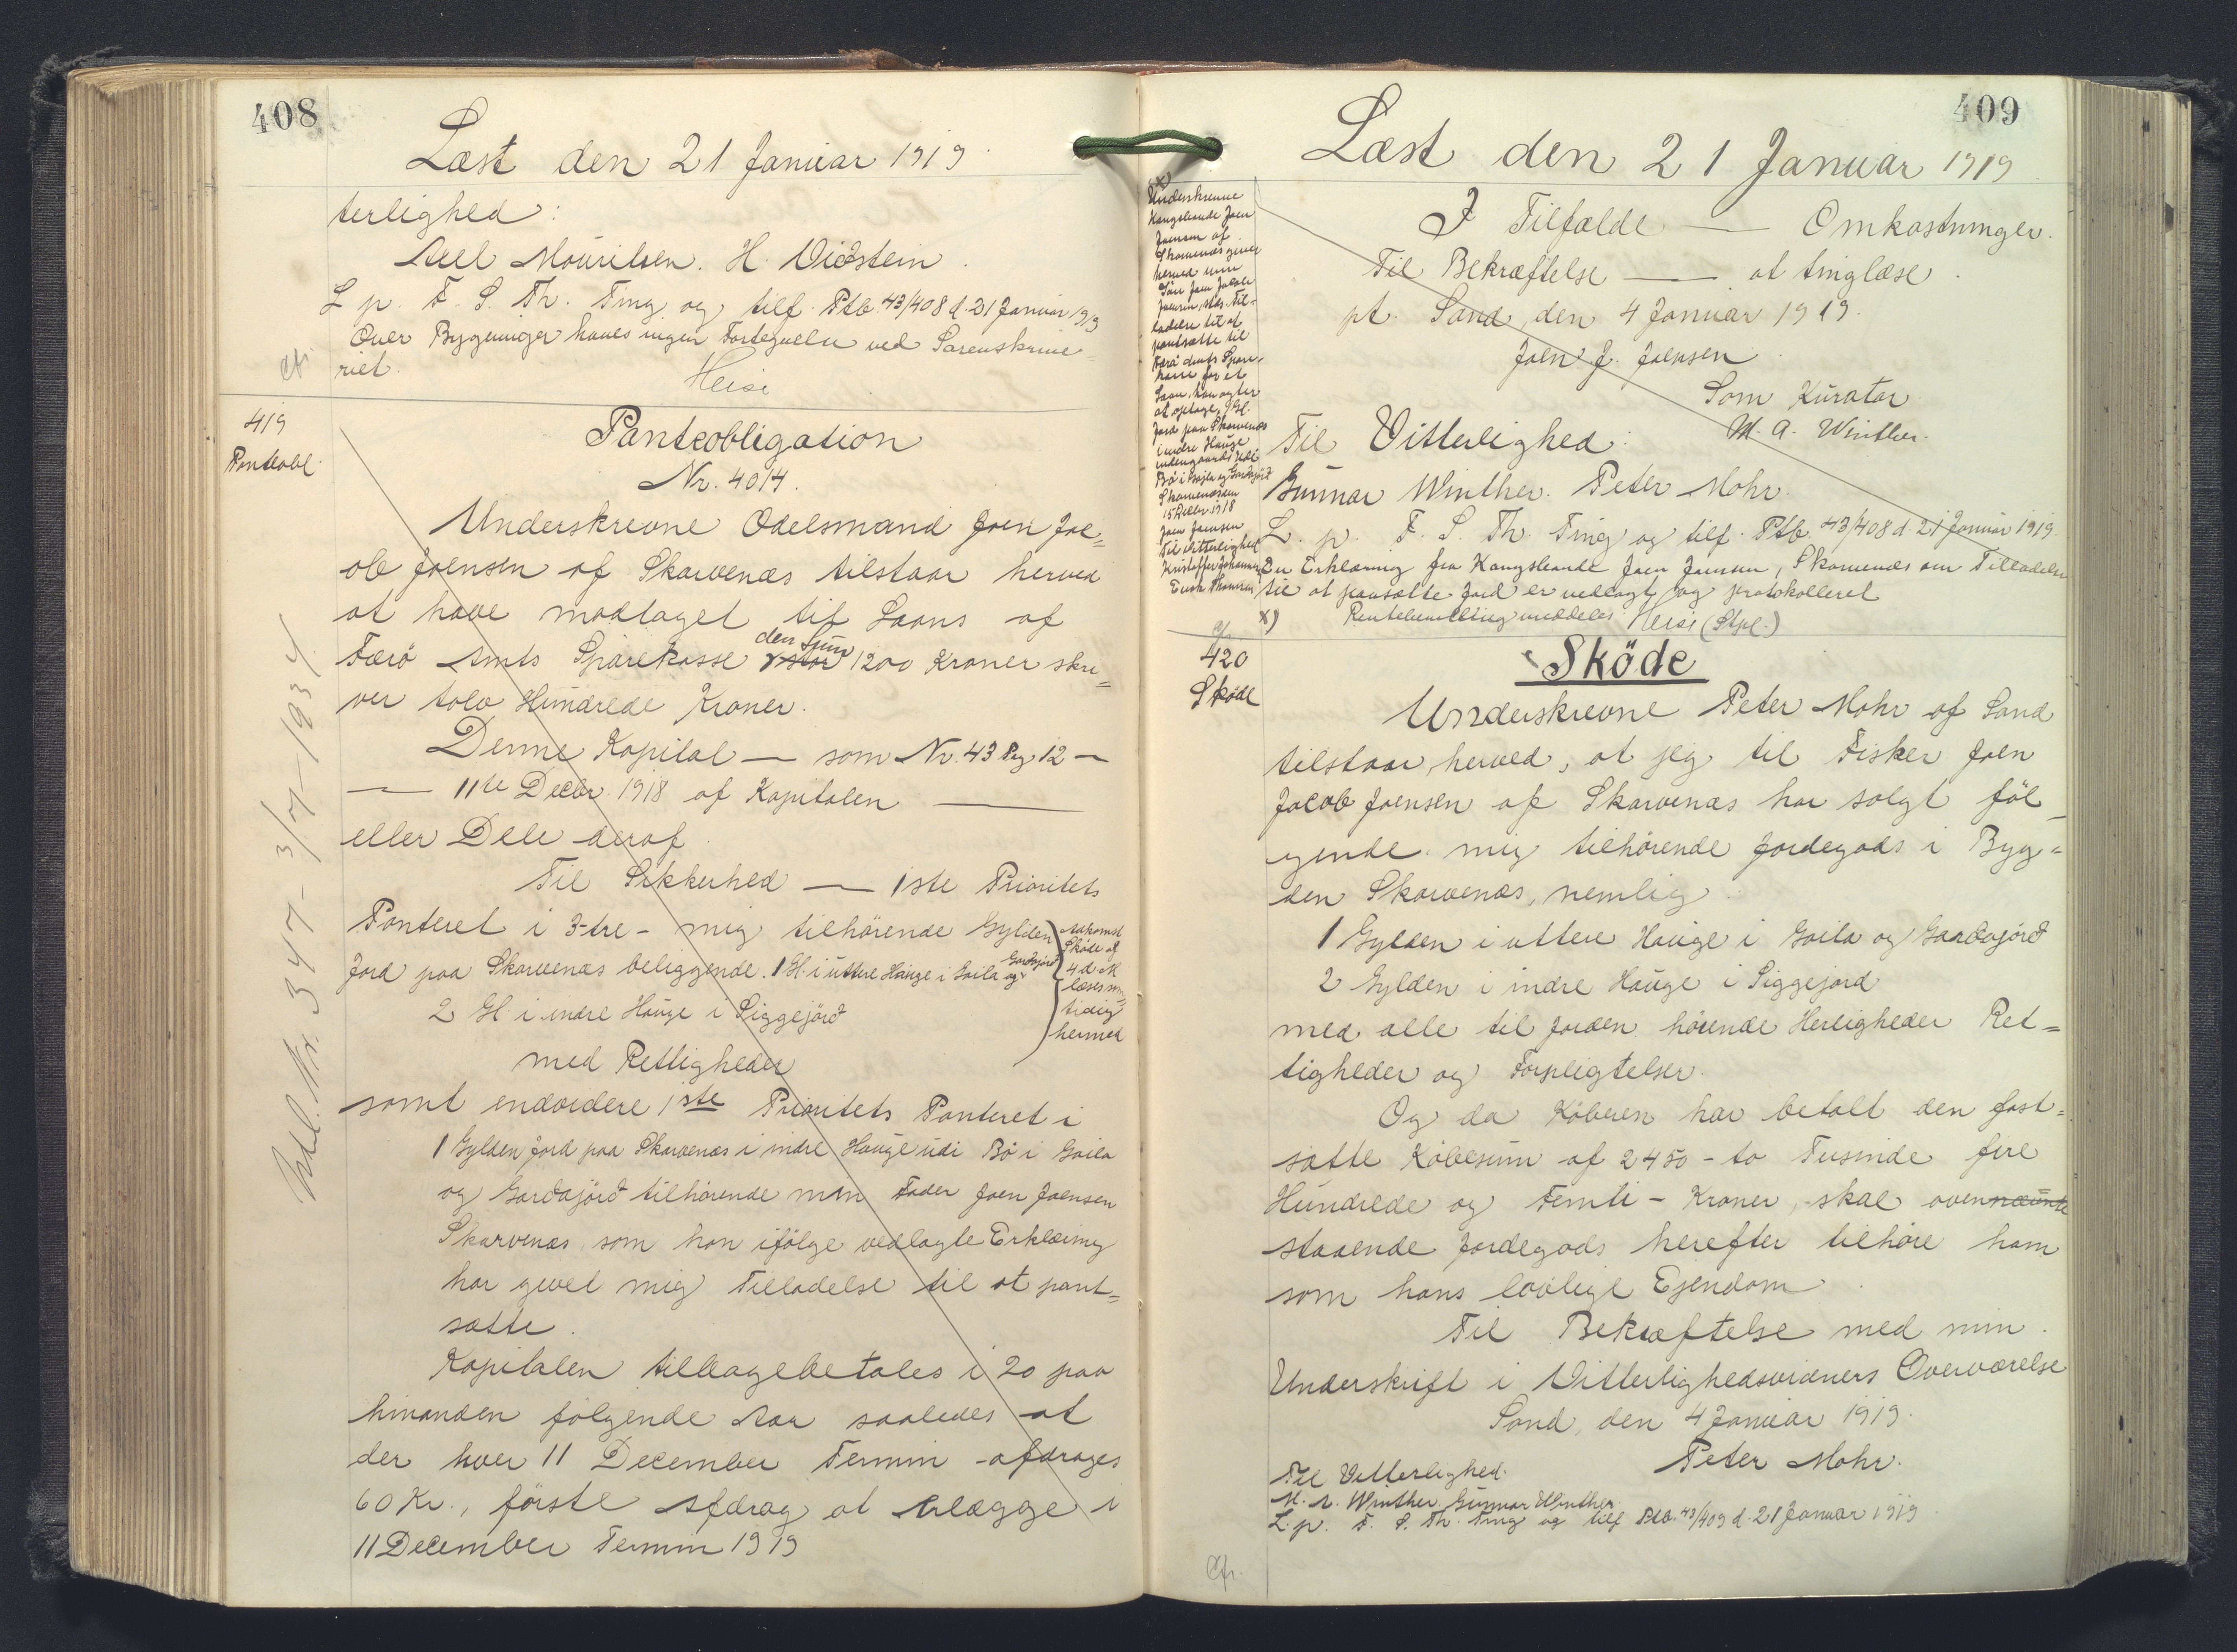 408
Læst den 21 Januar 1919
terlighed:
Axel Mouritsen. H. Vidstein.
L. p. F. S. Th. Ting og tilf. Ptb. 43/408 d. 21 Januar 1919
Over Bygninger haves ingen Fortegnelse ved Sorenskrive=
riet.
Heise
cfr.
419
Panteobl.
Panteobligation
Nr. 4014.
Underskrevne Odelsmand Joen Jac=
ob Joensen af Skarvenæs tilstaar herved
at have modtaget til Laans af
den Sum
Færö Amts Sparekasse stor 1200 Kroner skri=
ver tolv Hundrede Kroner.
Denne Kapital — som Nr. 43 Pag 12 —
— 11te Decbr. 1918 af Kapitalen —
eller Dele deraf.
Til Sikkerhed — 1ste Prioritets
Panteret i 3-tre- mig tilhörende Gylden
Jord paa Skarvenæs beliggende. 1 Gl. i uttere Hauge i Goila og Gardajörd
2 Gl. i indre Hauge i Siggejörd
Adkomst
Skøde af
4 d. M.
læses sam=
tidig
hermed
med Rettigheder
samt endvidere 1ste Prioritets Panteret i
1 Gylden Jord paa Skarvenæs i indre Hauge udi Bö i Goila
og Gardajörd tilhörende min Fader Joen Joensen
Skarvenæs, som han ifölge vedlagte Erklæring
har givet mig Tilladelse til at pant=
sætte.
Kapitalen tilbagebetales i 20 paa
hinanden fölgende Aar saaledes at
der hver 11 December Termin afdrages
60 Kr., förste Afdrag at erlægge i
11 December Termin 1919
Udl. Nr. 347 - 3/7-1934
409
Læst den 21 Januar 1919
I Tilfælde — Omkostninger.
Til Bekræftelse — at tinglæse.
pt. Sand, den 4 Januar 1919.
Joen J. Joensen
Som Kurator
M. A. Winther.
Til Vitterlighed:
Gunnar Winther. Peter Mohr.
L. p. F. S. Th. Ting og tilf. Ptb. 43/408 d. 21 Januar 1919.
En Erklæring fra Kongsbonde Joen Joensen, Skarvenæs om Tilladelse
til at pantsætte Jord er vedlagt og protokolleret
x) Heise (Stpl.)
x)
Underskrevne
Kongsbonde Joen
Joensen af
Skarvenæs giver
herved min
Sön Joen Jacob
Joensen, sstds. Til-
ladelse til at
pantsætte til
Færö Amts Spare-
kasse for et
Laan, han agter
at optage, 1 Gl.
Jord paa Skarvenæs
i indre Hauge
indengaards udi
Bö i Goila og Gardajörd
Skarvenæs den
15 Decbr 1918
Joen Joensen
Til Vitterlighed
cfr.
420
Sköde
Sköde
Underskrevne Peter Mohr af Sand
tilstaar herved, at jeg til Fisker Joen
Jacob Joensen af Skarvenæs har solgt föl-
gende mig tilhörende Jordegods i Byg=
den Skarvenæs, nemlig
1 Gylden i uttere Hauge i Goila og Gardajörd
2 Gylden i indre Hauge i Siggejord
med alle til Jorden hörende Herligheder Ret=
tigheder og Forpligtelser.
Og da Köberen har betalt den fast=
satte Köbesum af 2450 - to Tusinde fire
Hundrede og Femti - Kroner, skal ovennævnte
staaende Jordegods herefter tilhöre ham
som hans lovlige Ejendom.
Til Bekræftelse med min
Underskrift i Vitterlighedsvidners Overværelse
Sand, den 4 Januar 1919.
Peter Mohr.
Til Vitterlighed.
M. A. Winther. Gunnar Winther.
L. p. F. S. Th. Ting og tilf. Ptb. 43/409 d. 21 Januar 1919.
Cfr.